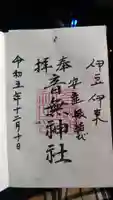 伊豆伊東
奉拝
音無神社
令和五年十二月十日